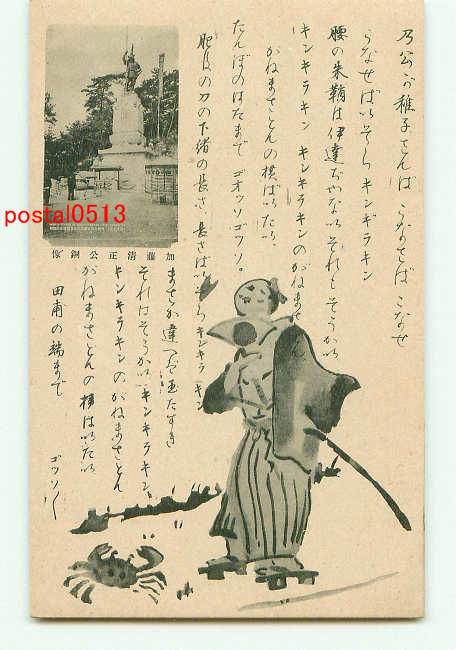 乃公が稚子さんは うなせば こなせ
うなせば いそら キンギラキン
腰の朱鞘は伊達ぢやない それもそうかい
キンキラキン キンキラキンのがねまさ
がねまさどんの横ばいばい
たんぼのはたまで ゴオソゴウソ。
肥後の刀の下渚の長さ 長さばい そら キンキラ キン
まさか違へば玉たすき
それはそうかい キンキラキン
キンキラキンのがねまさどん
がねまさどんの横ばいばい
田甫の端まで ゴウソ〱
加藤清正公銅像
postal0513